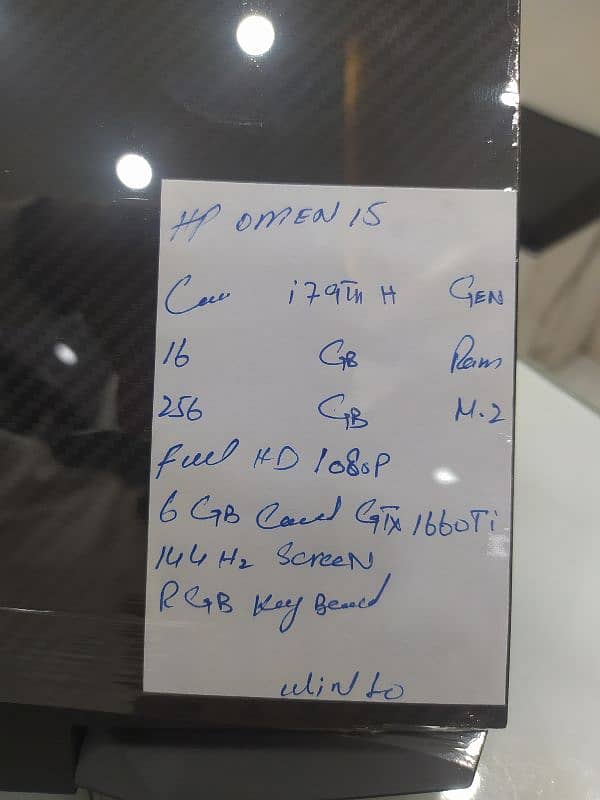 HP OMEN 15
Core i7 9Th H GEN
16 GB Ram
256 GB M.2
Full HD 1080P
6 GB Card GTx 1660Ti
144 Hz Screen
RGB Key Board
Win 10